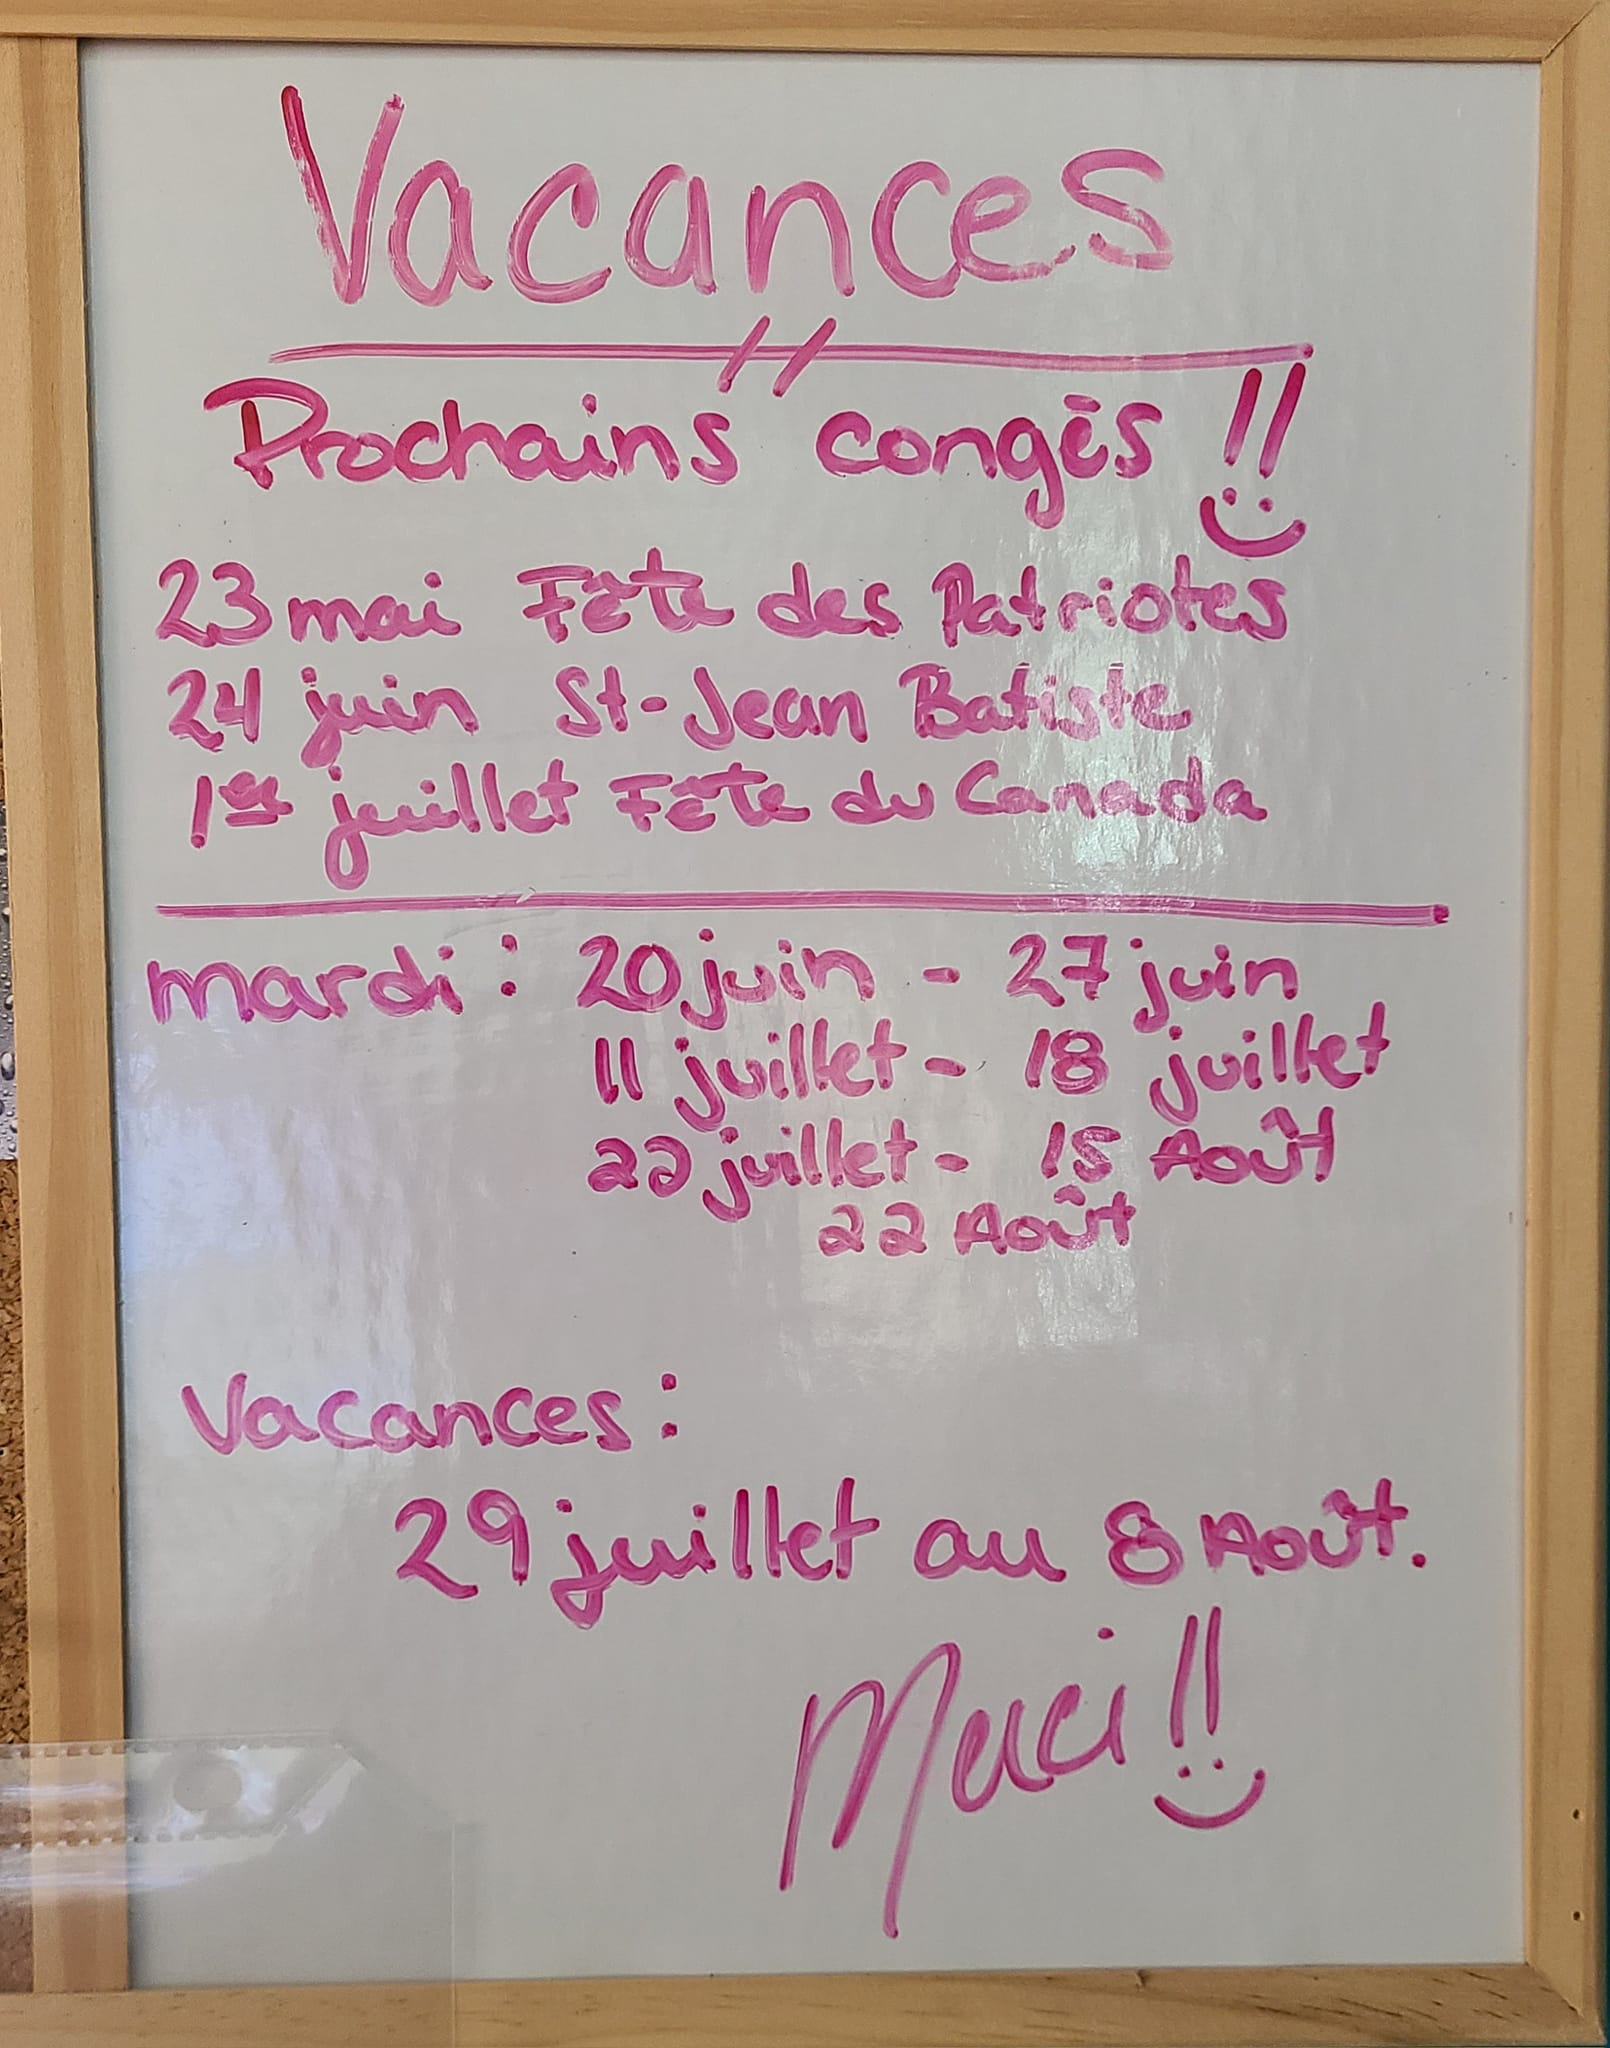 Vacances
Prochains congés !!
23 mai Fête des Patriotes
24 juin St-Jean Batiste
1er juillet Fête du Canada
mardi : 20 juin - 27 juin
11 juillet - 18 juillet
22 juillet - 15 Août
22 Août
Vacances :
29 juillet au 8 Août.
Merci !!